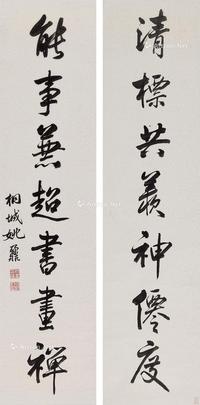 清標共羨神僊度
能事兼超書畫禪
桐城姚鼐